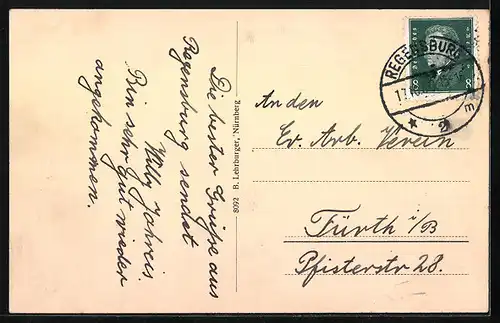 Die besten Grüße aus
Regensburg sendet
Willy Jahreis
Bin sehr gut wieder
angekommen.
8092 B. Lehrburger, Nürnberg
REGENSBURG
2
8
An den
Ev. Arb. Verein
Fürth i/B
Pfisterstr 28.